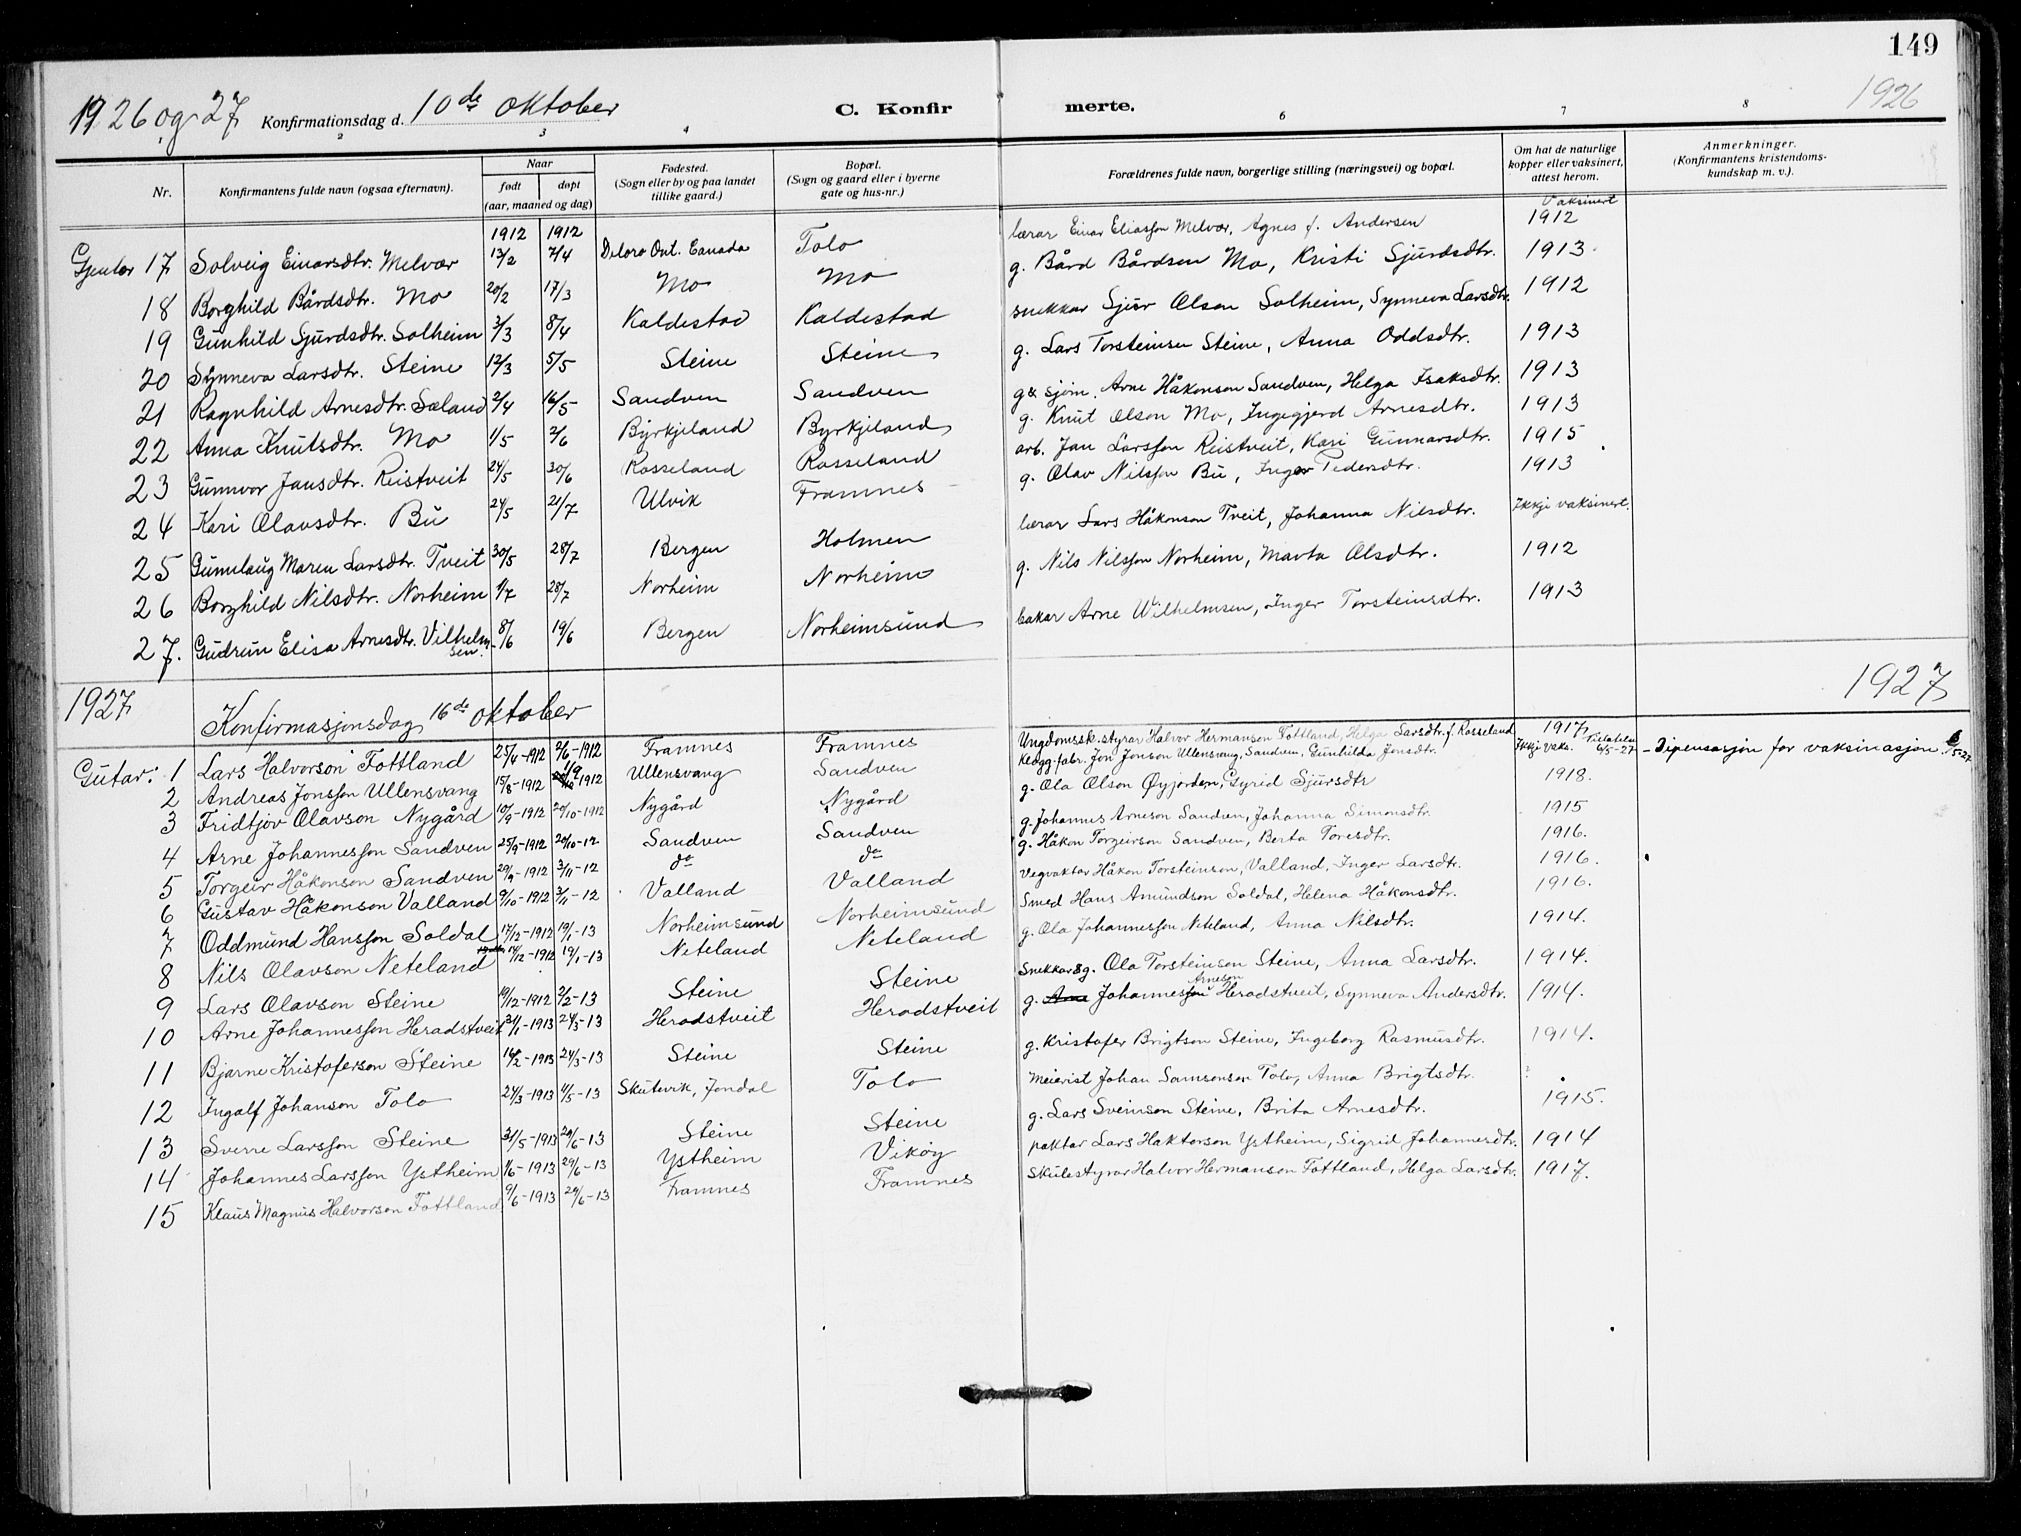 149
1926 og 27 Konfirmationsdag d. 10de oktober C. Konfirmerte. 1926
1 2 3 4 6 7 8
Nr. Konfirmantens fulde navn (ogsaa efternavn). Naar født døpt (aar, maaned og dag) Fødested. (Sogn eller by og paa landet tillike gaard.) Bopæl. (Sogn og gaard eller i byerne gate og hus-nr.) Forældrenes fulde navn, borgerlige stilling (næringsvei) og bopæl. Om hat de naturlige kopper eller vaksinert, attest herom. Anmerkninger. (Konfirmantens kristendoms-kundskap m. v.).
1912 1912 Vaksinert
Gjentor 17 Solveig Einarsdtr. Melvær 13/2 7/4 Deloro Ont. Canada Tolo lærar Einar Eliasson Melvær, Agnes f. Andersen 1912
18 Borghild Bårdsdtr. Mo 20/2 17/3 Mo Mo g. Bård Bårdsen Mo, Kristi Sjurdsdtr. 1913
19 Gunhild Sjurdsdtr. Solheim 3/3 8/4 Kaldestad Kaldestad snekkar Sjur Olson Solheim, Synneva Larsdtr. 1912
20 Synneva Larsdtr. Steine 12/3 5/5 Steine Steine g. Lars Torsteinsen Steine, Anna Oddsdtr. 1913
21 Ragnhild Arnesdtr. Sæland 2/4 16/5 Sandven Sandven g & sjøm. Arne Håkonson Sandven, Helga Isaksdtr. 1913
22 Anna Knutsdtr. Mo 1/5 2/6 Byrkjeland Byrkjeland g. Knut Olson Mo, Ingegjerd Arnesdtr. 1913
23 Gunnvor Jansdtr. Reistveit 24/5 30/6 Rosseland Rosseland arb. Jan Larsson Reistveit, Kari Gunnarsdtr. 1915
24 Kari Olavsdtr. Bu 24/5 21/7 Ulvik Framnes g. Olav Nilsson Bu, Inger Pedersdtr. 1913
25 Gunnlaug Maren Larsdtr. Tveit 30/5 28/7 Bergen Holmen lærar Lars Håkonson Tveit, Johanna Nilsdtr. Ikkje vaksinert.
26 Borghild Nilsdtr. Norheim 1/7 28/7 Norheim Norheim g. Nils Nilsson Norheim, Marta Olsdtr. 1912
27. Gudrun Elisa Arnesdtr. Vilhelmsen. 8/6 19/6 Bergen Norheimsund bakar Arne Wilhelmsen, Inger Torsteinsdtr. 1913
1927 Konfirmasjonsdag 16de oktober 1927
Gutar: 1 Lars Halvorson Fottland 25/4-1912 2/6-1912 Framnes Framnes Ungdomssk.styrar Halvor Hermanson Fottland, Helga Larsdtr. f. Rosseland 1917
2 Andreas Jonsson Ullensvang 15/8-1912 1/9 1912 Ullensvang Sandven Kledgg.fabr. Jon Jonson Ullensvang, Sandven. Gunhilda Jonsdtr. Ikkje vaks. 6/5-27 - Dipensasjon for vaksinasjon 6/5-27
3 Fridtjov Olavson Nygård 10/9-1912 20/10-1912 Nygård Nygård g. Ola Olson Øyjorden, Gyrid Sjursdtr 1918.
4 Arne Johannesson Sandven 25/9-1912 20/10-12 Sandven Sandven g. Johannes Arneson Sandven, Johanna Simonsdtr. 1915
5 Torgeir Håkonson Sandven 29/9-1912 3/11-12 do do g. Håkon Torgeirson Sandven, Berta Toresdtr. 1916.
6 Gustav Håkonson Valland 9/10-1912 3/11-12 Valland Valland Vegvaktar Håkon Torsteinson, Valland, Inger Larsdtr. 1916.
7 Oddmund Hansson Soldal 17/12-1912 19/1-13 Norheimsund Norheimsund Smed Hans Amundson Soldal, Helena Håkonsdtr. 1916.
8 Nils Olavson Neteland 14/12-1912 19/1-13 Neteland Neteland g. Ola Johannesson Neteland, Anna Nilsdtr. 1914.
9 Lars Olavson Steine 19/12-1912 2/2-13 Steine Steine Snekkar & g. Ola Torsteinson Steine, Anna Larsdtr. 1914.
10 Arne Johannesson Heradstveit 31/1-1913 24/3-13 Heradstveit Heradstveit g. Arne Johannesson Arneson Heradstveit, Synneva Andersdtr. 1914.
11 Bjarne Kristoferson Steine 16/2-1913 24/3-13 Steine Steine g. Kristofer Brigtson Steine, Ingeborg Rasmusdtr. 1914.
12 Ingolf Johanson Tolo 24/3-1913 4/5-13 Skutevik, Jondal Tolo Meierist Johan Samsonson Tolo, Anna Brigtsdtr. ?
13 Sverre Larsson Steine 31/5-1913 29/6-13 Steine Steine g. Lars Sveinson Steine, Brita Arnesdtr. 1915.
14 Johannes Larsson Ystheim 1/6-1913 29/6-13 Ystheim Vikøy paktar Lars Haktorson Ystheim, Sigrid Johannesdtr. 1914
15 Klaus Magnus Halvorson Fottland 9/6-1913 29/6-13 Framnes Framnes Skulestyrar Halvor Hermanson Fottland, Helga Larsdtr. 1917.